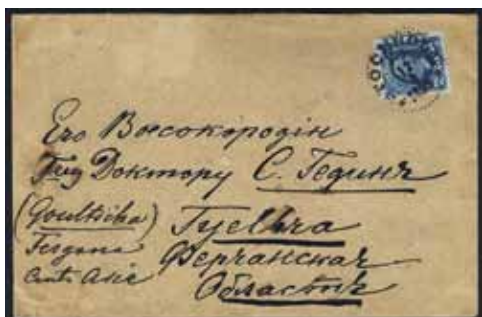 Его Высокородiи
Гну Доктору С. Гединъ
(Goultscha) Гуельча
Fergana Ферганская
Cent. Asie Область